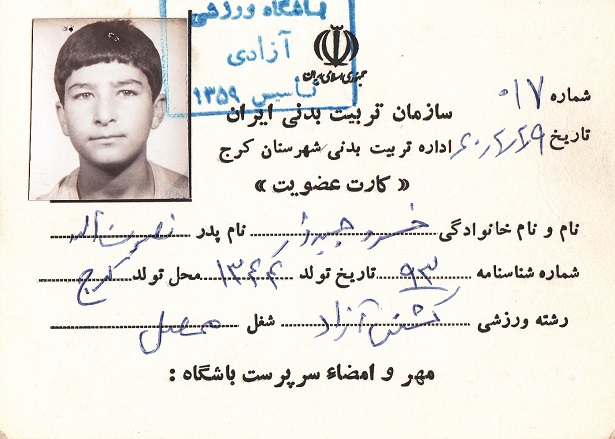 باشگاه ورزشی
آزادی
تاسیس ۱۳۵۹
جمهوری اسلامی ایران
شماره ۰۱۷
سازمان تربیت بدنی ایران
تاریخ
اداره تربیت بدنی شهرستان کرج
« کارت عضویت »
نام و نام خانوادگی خسرو نام پدر نصرت اله
شماره شناسنامه ۹۳ تاریخ تولد ۱۳۴۴ محل تولد کرج
رشته ورزشی کشتی آزاد شغل محصل
مهر و امضاء سرپرست باشگاه :